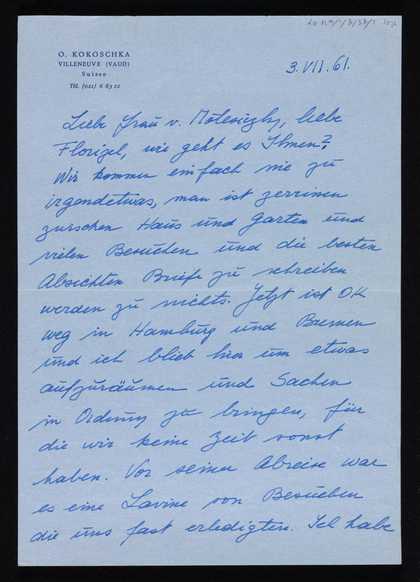 O. KOKOSCHKA
VILLENEUVE (VAUD)
Suisse
3. VII. 61.
Liebe Frau v. liebe
Florizel, wie geht es Ihnen?
Wir kommen einfach nie zu
irgendetwas, man ist zerrissen
zwischen Haus und Garten und
vielen Besuchen und die besten
Absichten Briefe zu schreiben
werden zu nichts. Jetzt ist OK
weg in Hamburg und Bremen
und ich blieb hier um etwas
aufzuräumen und Sachen
in Ordnung zu bringen, für
die wir keine Zeit sonst
haben. Vor seiner Abreise war
es eine Lavine von Besuchen
die uns fast erledigten. Ich habe